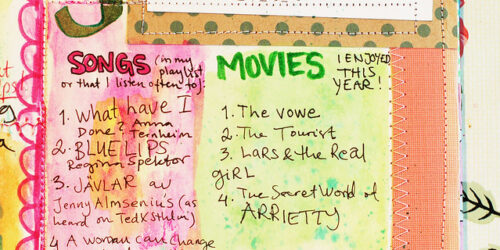 SONGS (in my
playlist
or that I listen often to):
1. What have I
Done? Anna
Ternheim
2. BLUE LIPS
Regina Spektor
3. JÄVLAR av
Jenny Almsenius (as
heard on TedXSthlm)
4 A woman can change
MOVIES I ENJOYED
THIS
YEAR!
1. The vowe
2. The Tourist
3. LaRS & the Real
giRL
4. The Secret World of
ARRIETTY